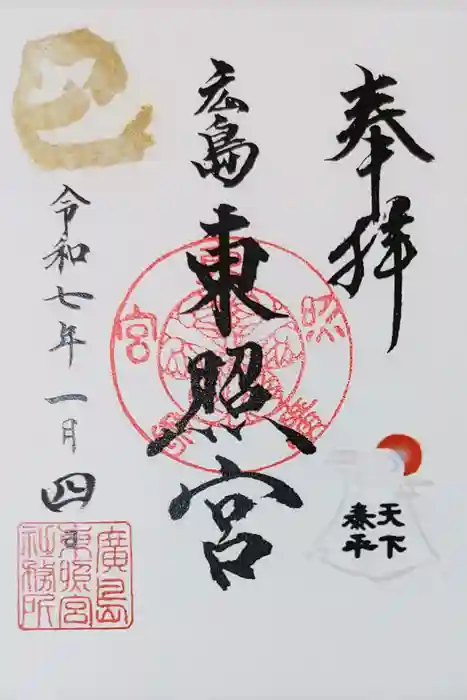 奉拝
広島
東照宮
令和七年一月四日
巳
天下
泰平
廣島
東照宮
社務所
照
宮